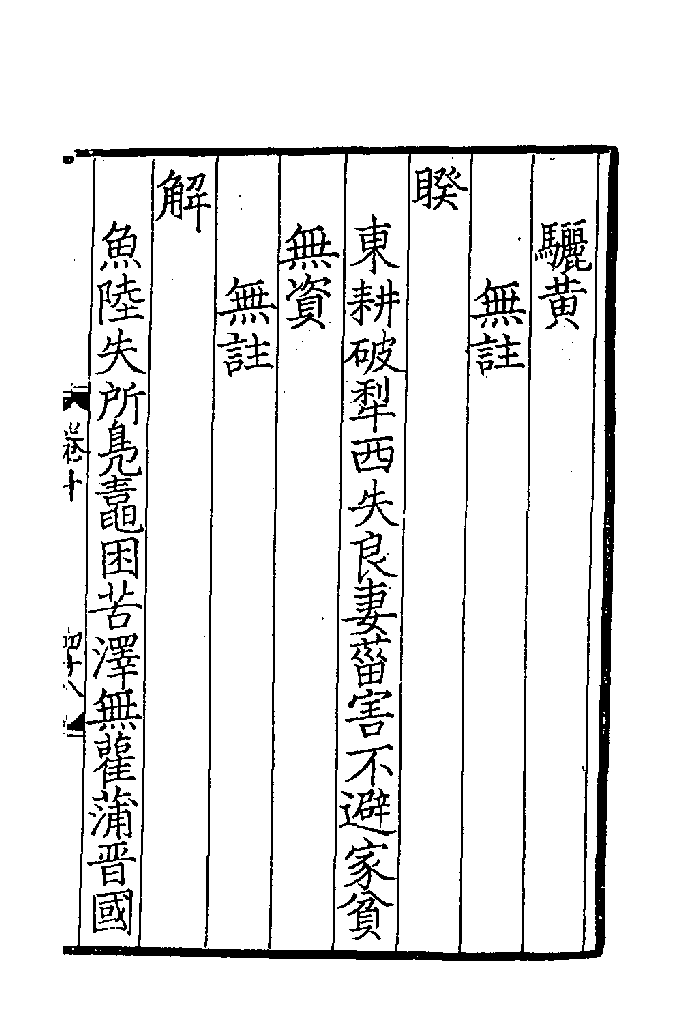 驪黃
無註
睽
東耕破犁西失良妻葘害不避家貧
無資
無註
解
魚陸失所鳧鼃困苦澤無雚蒲晋國
卷十
四十八